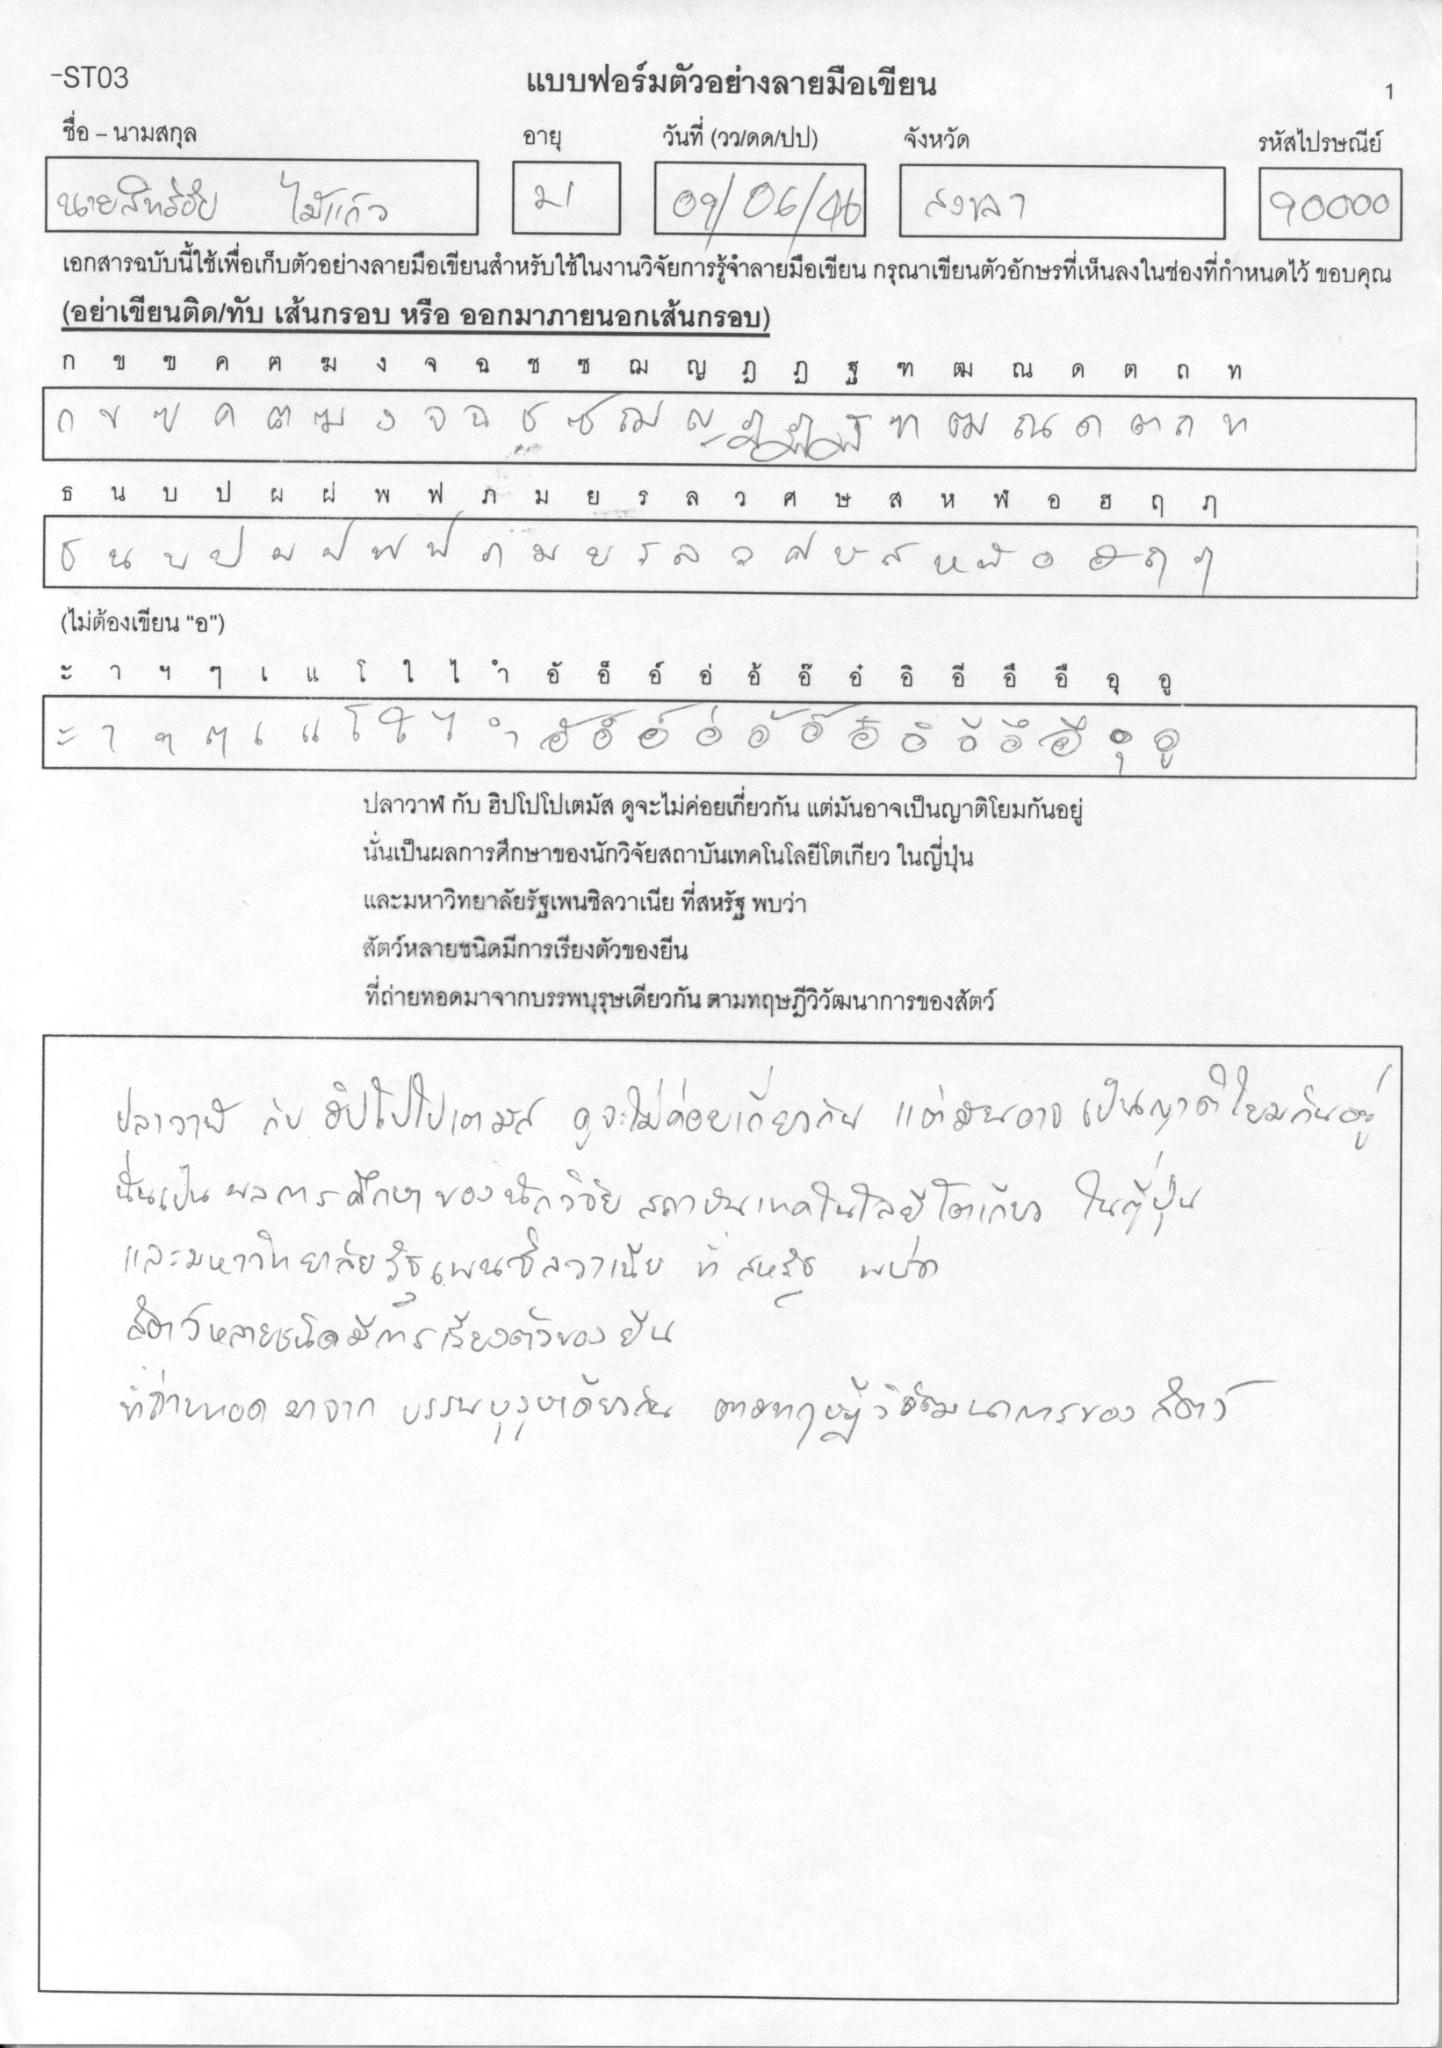 -ST03
แบบฟอร์มตัวอย่างลายมือเขียน
1
ชื่อ – นามสกุล อายุ วันที่ (วว/ดด/ปป) จังหวัด รหัสไปรษณีย์
ไม้แก้ว 09/06/46 สงขลา 90000
เอกสารฉบับนี้ใช้เพื่อเก็บตัวอย่างลายมือเขียนสำหรับใช้ในงานวิจัยการรู้จำลายมือเขียน กรุณาเขียนตัวอักษรที่เห็นลงในช่องที่กำหนดไว้ ขอบคุณ
(อย่าเขียนติด/ทับ เส้นกรอบ หรือ ออกมาภายนอกเส้นกรอบ)
ก ข ฃ ค ฅ ฆ ง จ ฉ ช ซ ฌ ญ ฎ ฏ ฐ ฑ ฒ ณ ด ต ถ ท
ก ข ฃ ค ฅ ฆ ง จ ฉ ช ซ ฌ ญ ฎ ฏ ฐ ฑ ฒ ณ ด ต ถ ท
ธ น บ ป ผ ฝ พ ฟ ภ ม ย ร ล ว ศ ษ ส ห ฬ อ ฮ ฤ ฦ
ธ น บ ป ผ ฝ พ ฟ ภ ม ย ร ล ว ศ ษ ส ห ฬ อ ฮ ฤ ฦ
(ไม่ต้องเขียน “อ”)
ะ า ฯ ๆ เ แ โ ใ ไ ำ อั อ็ อ์ อ่ อ้ อ๊ อ๋ อิ อี อึ อื อุ อู
ะ า ฯ ๆ เ แ โ ใ ไ ำ อั อ็ อ์ อ่ อ้ อ๊ อ๋ อิ อี อึ อื อุ อู
ปลาวาฬ กับ ฮิปโปโปเตมัส ดูจะไม่ค่อยเกี่ยวกัน แต่มันอาจเป็นญาติโยมกันอยู่
นั่นเป็นผลการศึกษาของนักวิจัยสถาบันเทคโนโลยีโตเกียว ในญี่ปุ่น
และมหาวิทยาลัยรัฐเพนซิลวาเนีย ที่สหรัฐ พบว่า
สัตว์หลายชนิดมีการเรียงตัวของยีน
ที่ถ่ายทอดมาจากบรรพบุรุษเดียวกัน ตามทฤษฎีวิวัฒนาการของสัตว์
ปลาวาฬ กับ ฮิปโปโปเตมัส ดูจะไม่ค่อยเกี่ยวกัน แต่มันอาจเป็นญาติโยมกันอยู่
นั่นเป็นผลการศึกษาของนักวิจัย สถาบันเทคโนโลยีโตเกียว ในญี่ปุ่น
และมหาวิทยาลัยรัฐเพนซิลวาเนีย ที่ สหรัฐ พบว่า
สัตว์หลายชนิดมีการเรียงตัวของยีน
ที่ถ่ายทอดมาจาก บรรพบุรุษเดียวกัน ตามทฤษฎีวิวัฒนาการของ สัตว์